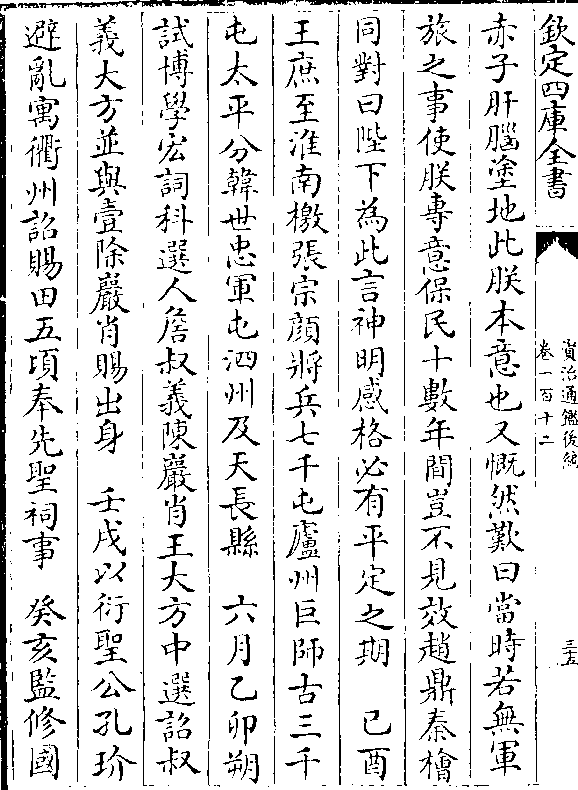 欽定四庫全書
資治通鑑後編
卷一百十二
三五
赤子肝腦塗地此朕本意也又慨然歎曰當時若無軍
旅之事使朕專意保民十數年間豈不見效趙鼎秦檜
同對曰陛下為此言神明感格必有平定之期　己酉
王庶至淮南檄張宗顔將兵七千屯廬州巨師古三千
屯太平分韓世忠軍屯泗州及天長縣　六月乙卯朔
試博學宏詞科選人詹叔義陳巖肖王大方中選詔叔
義大方並與壹除巖肖賜出身　壬戌以衍聖公孔玠
避亂寓衢州詔賜田五頃奉先聖祠事　癸亥監修國